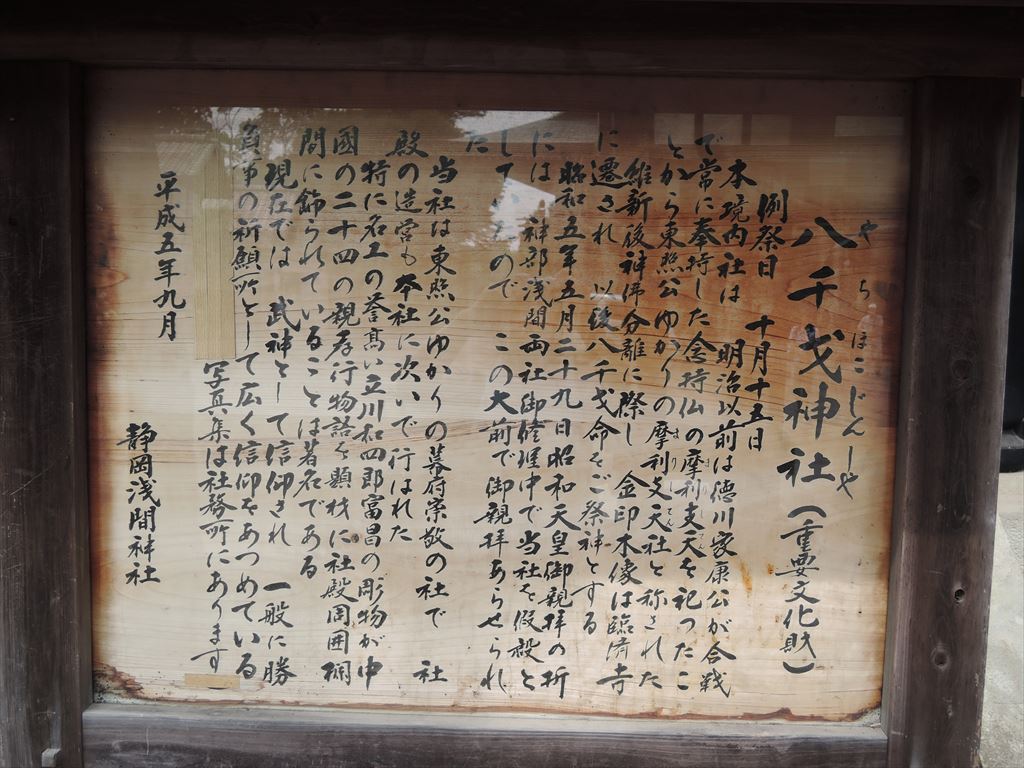 八千戈神社(重要文化財)
やちほこじんしゃ
例祭日 十月十五日
本境内社は 明治以前は徳川家康公が合戦
で常に奉持した念持仏の摩利支天を祀ったこ
とから東照公ゆかりの摩利支天社と称された
維新後神佛分離に際し 金印木像は臨済寺
に遷され 以後八千戈命をご祭神とする
昭和五年五月二十九日昭和天皇御親拝の折
には 神部浅間両社御修理中で当社を假殿と
していたので この大前で御親拝あらせられ
た
当社は東照公ゆかりの幕府崇敬の社で 社
殿の造営も本社に次いで行はれた
特に名工の誉高い立川和四郎富昌の彫物が中
國の二十四の親孝行物語を題材に社殿周囲欄
間に飾られていることは著名である
現在では 武神として信仰され 一般に勝
負事の祈願所として広く信仰をあつめている
写真集は社務所にあります
平成五年九月
静岡浅間神社